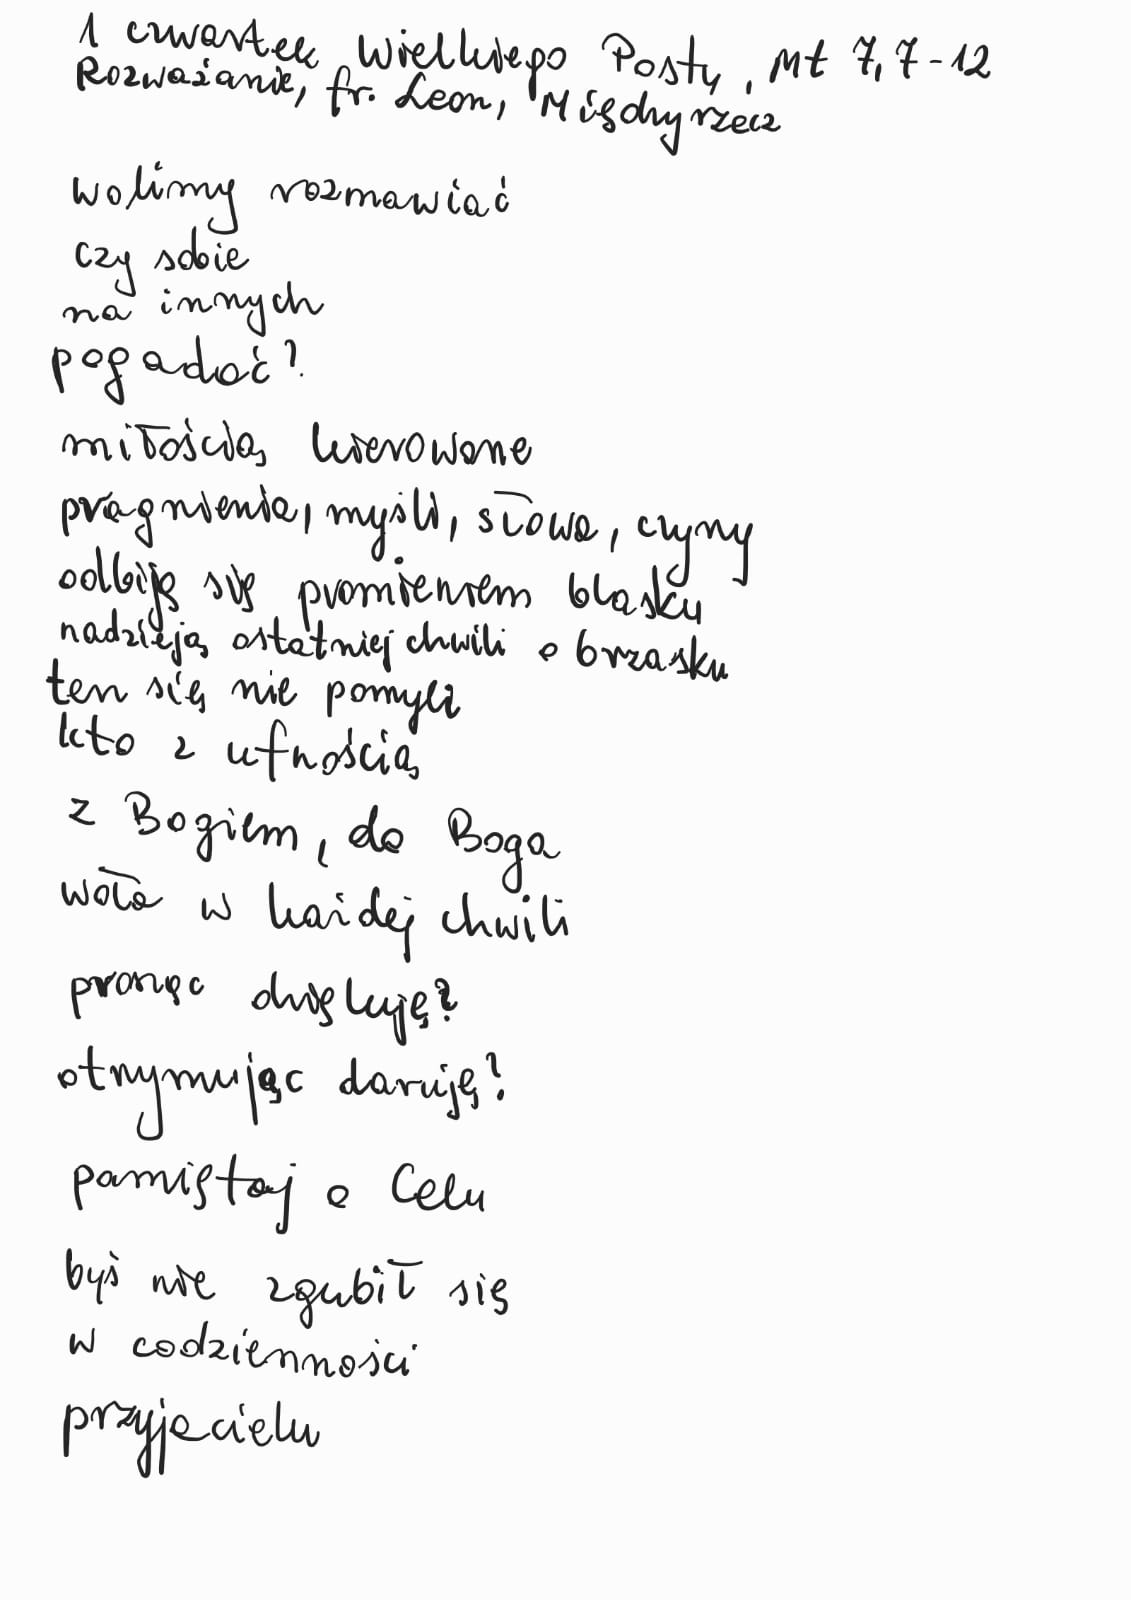 1 czwartek Wielkiego Posty, Mt 7,7-12
Rozważanie, fr. Leon, Międzyrzecz
wolimy rozmawiać
czy sobie
na innych
pogadać?
miłością kierowane
pragnienia, myśli, słowa, czyny
odbiję się promieniem blasku
nadzieją ostatniej chwili o brzasku
ten się nie pomyli
kto z ufnością
z Bogiem, do Boga
woła w każdej chwili
prosząc dziękuję?
otrzymując daruję?
pamiętaj o Celu
byś nie zgubił się
w codzienności
przyjacielu